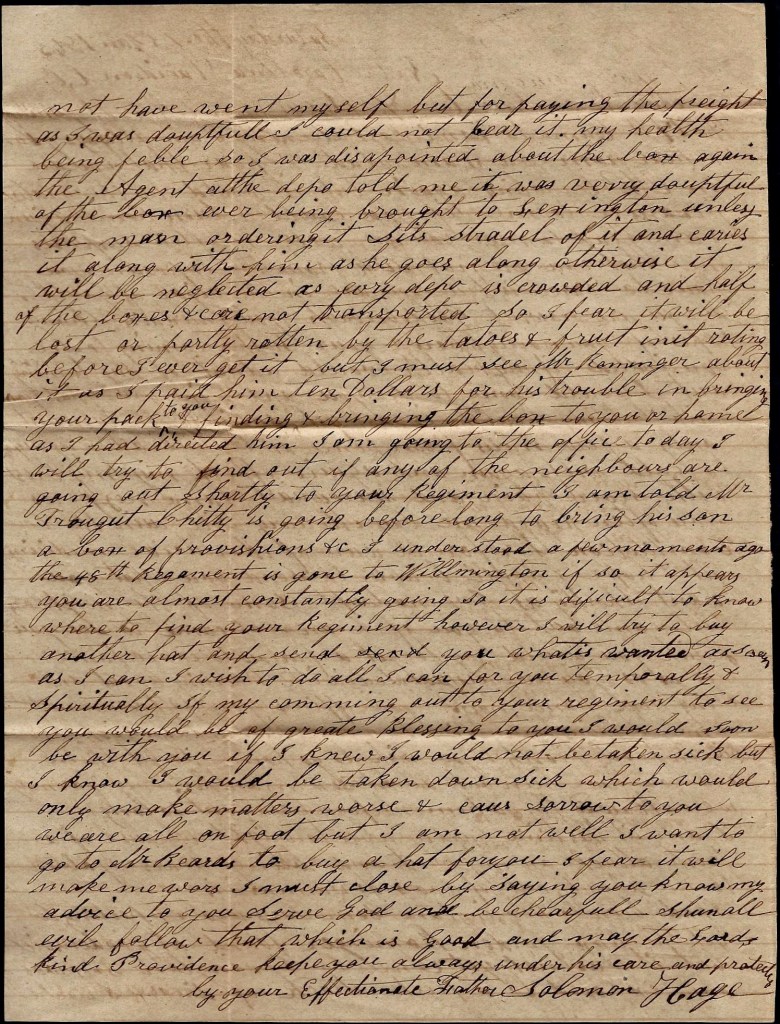 not have went myself but for paying the freight
as I was douptfull I could not bear it. my health
being feble so I was disapointed about the box again
the Agent atthe depo told me it was verry douptful
of the box ever being brought to Lexington unless
the man ordering it sits stradel of it and caries
it along with him as he goes along otherwise it
will be neglected as evry depo is crowded and half
of the boxes &c are not transported So I fear it will be
lost or partly rotten by the tatoes & fruit init roting
before I ever get it but I must see Mr Koninger about
it as I paid him ten Dollars for his trouble in bringing
your pack to you finding & bringing the box to you or home
as I had directed him I am going to the offic to day I
will try to find out if any of the neighbours are
going out shortly to your Regiment I am told Mr
Trougut Chitty is going before long to bring his son
a box of provishions &c I under stood a few moments ago
the 48th Regament is gone to Willmington if so it appears
you are almost constantly going so it is dificult to know
where to find your Regiment however I will try to buy
another hat and send send you whatis wanted as soon
as I can I wish to do all I can for you temporally &
spiritually If my comming out to your regiment to see
you would be of greate blessing to you I would soon
be with you if I knew I would not be taken sick but
I know I would be taken down sick which would
only make matters worse & caus sorrow to you
we are all on foot but I am not well I want to
go to Mr Beards to buy a hat for you I fear it will
make me wors I must close by saying you know my
advice to you Serve God and be chearfull shun all
evil follow that which is Good and may the Lords
kind Providence keepe you always under his care and protects
by your Effectionate Father Solomon Hage